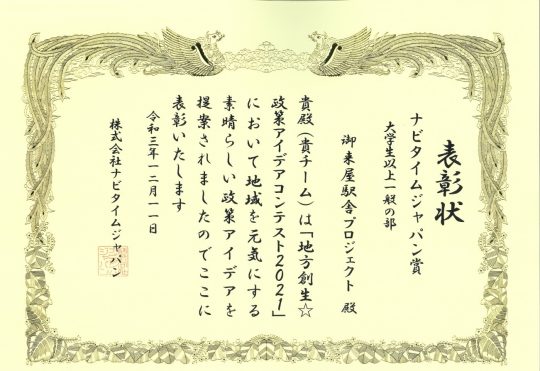 表彰状
ナビタイムジャパン賞
大学生以上一般の部
御来屋駅舎プロジェクト 殿
貴殿(貴チーム)は「地方創生☆
政策アイデアコンテスト2021」
において地域を元気にする
素晴らしい政策アイデアを
提案されましたのでここに
表彰いたします
令和三年一二月一一日
株式会社ナビタイムジャパン